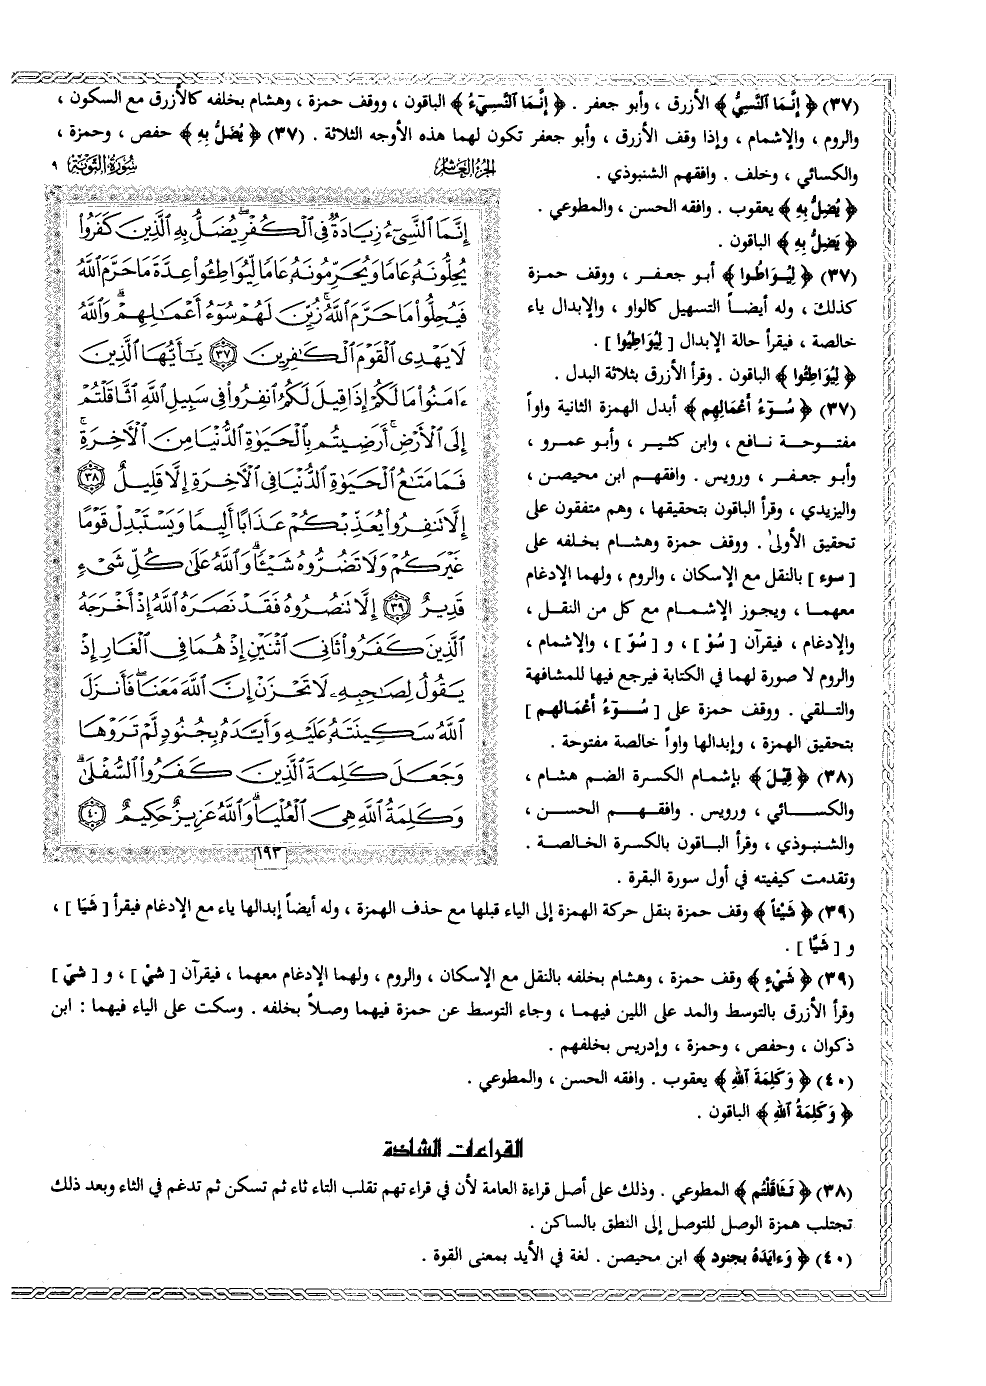 (٣٧) ﴿ إِنَّمَا ٱلنَّسِيُّ ﴾ الأزرق ، وأبو جعفر . ﴿ إِنَّمَا ٱلنَّسِيٓءُ ﴾ الباقون ، ووقف حمزة ، وهشام بخلفه كالأزرق مع السكون ،
والروم ، والإشمام ، وإذا وقف الأزرق ، وأبو جعفر تكون لهما هذه الأوجه الثلاثة . (٣٧) ﴿ يُضَلُّ بِهِ ﴾ حفص ، وحمزة ،
والكسائي ، وخلف . وافقهم الشنبوذي .
﴿ يُضِلُّ بِهِ ﴾ يعقوب . وافقه الحسن ، والمطوعي .
﴿ يَضِلُّ بِهِ ﴾ الباقون .
(٣٧) ﴿ لِيُوَاطُوا ﴾ أبو جعفر ، ووقف حمزة
كذلك ، وله أيضاً التسهيل كالواو ، والإبدال ياء
خالصة ، فيقرأ حالة الإبدال [ لِيُوَاطِيُوا ] .
﴿ لِيُوَاطِئُوا ﴾ الباقون . وقرأ الأزرق بثلاثة البدل .
(٣٧) ﴿ سُوٓءُ أَعْمَالِهِم ﴾ أبدل الهمزة الثانية واواً
مفتوحة نافع ، وابن كثير ، وأبو عمرو ،
وأبو جعفر ، ورويس . وافقهم ابن محيصن ،
واليزيدي ، وقرأ الباقون بتحقيقها ، وهم متفقون على
تحقيق الأولىٰ . ووقف حمزة وهشام بخلفه على
[ سوء ] بالنقل مع الإسكان ، والروم ، ولهما الإدغام
معهما ، ويجوز الإشمام مع كل من النقل ،
والإدغام ، فيقرآن [ سُوْ ] ، و [ سُوّ ] ، والإشمام ،
والروم لا صورة لهما في الكتابة فيرجع فيها للمشافهة
والتلقي . ووقف حمزة على [ سُوٓءُ أَعْمَالهم ]
بتحقيق الهمزة ، وإبدالها واواً خالصة مفتوحة .
(٣٨) ﴿ قِيلَ ﴾ بإشمام الكسرة الضم هشام ،
والكسائي ، ورويس . وافقهم الحسن ،
والشنبوذي ، وقرأ الباقون بالكسرة الخالصة .
وتقدمت كيفيته في أول سورة البقرة .
سُورَةُ التَّوبَةِ ٩
الجزء العاشر
إِنَّمَا ٱلنَّسِىٓءُ زِيَادَةٌ فِى ٱلْكُفْرِ يُضَلُّ بِهِ ٱلَّذِينَ كَفَرُوا۟
يُحِلُّونَهُۥ عَامًا وَيُحَرِّمُونَهُۥ عَامًا لِّيُوَاطِـُٔوا۟ عِدَّةَ مَا حَرَّمَ ٱللَّهُ
فَيُحِلُّوا۟ مَا حَرَّمَ ٱللَّهُ ۚ زُيِّنَ لَهُمْ سُوٓءُ أَعْمَـٰلِهِمْ ۗ وَٱللَّهُ
لَا يَهْدِى ٱلْقَوْمَ ٱلْكَـٰفِرِينَ ٣٧ يَـٰٓأَيُّهَا ٱلَّذِينَ
ءَامَنُوا۟ مَا لَكُمْ إِذَا قِيلَ لَكُمُ ٱنفِرُوا۟ فِى سَبِيلِ ٱللَّهِ ٱثَّاقَلْتُمْ
إِلَى ٱلْأَرْضِ ۚ أَرَضِيتُم بِٱلْحَيَوٰةِ ٱلدُّنْيَا مِنَ ٱلْـَٔاخِرَةِ ۚ
فَمَا مَتَـٰعُ ٱلْحَيَوٰةِ ٱلدُّنْيَا فِى ٱلْـَٔاخِرَةِ إِلَّا قَلِيلٌ ٣٨
إِلَّا تَنفِرُوا۟ يُعَذِّبْكُمْ عَذَابًا أَلِيمًا وَيَسْتَبْدِلْ قَوْمًا
غَيْرَكُمْ وَلَا تَضُرُّوهُ شَيْـًٔا ۗ وَٱللَّهُ عَلَىٰ كُلِّ شَىْءٍ
قَدِيرٌ ٣٩ إِلَّا تَنصُرُوهُ فَقَدْ نَصَرَهُ ٱللَّهُ إِذْ أَخْرَجَهُ
ٱلَّذِينَ كَفَرُوا۟ ثَانِىَ ٱثْنَيْنِ إِذْ هُمَا فِى ٱلْغَارِ إِذْ
يَقُولُ لِصَـٰحِبِهِۦ لَا تَحْزَنْ إِنَّ ٱللَّهَ مَعَنَا ۖ فَأَنزَلَ
ٱللَّهُ سَكِينَتَهُۥ عَلَيْهِ وَأَيَّدَهُۥ بِجُنُودٍ لَّمْ تَرَوْهَا
وَجَعَلَ كَلِمَةَ ٱلَّذِينَ كَفَرُوا۟ ٱلسُّفْلَىٰ ۗ
وَكَلِمَةُ ٱللَّهِ هِىَ ٱلْعُلْيَا ۗ وَٱللَّهُ عَزِيزٌ حَكِيمٌ ٤٠
١٩٣
(٣٩) ﴿ شَيْئاً ﴾ وقف حمزة بنقل حركة الهمزة إلى الياء قبلها مع حذف الهمزة ، وله أيضاً إبدالها ياء مع الإدغام فيقرأ [ شَيَا ] ،
و [ شَيًّا ] .
(٣٩) ﴿ شَيْءٍ ﴾ وقف حمزة ، وهشام بخلفه بالنقل مع الإسكان ، والروم ، ولهما الإدغام معهما ، فيقرآن [ شيْ ] ، و [ شيّ ]
وقرأ الأزرق بالتوسط والمد على اللين فيهما ، وجاء التوسط عن حمزة فيهما وصلاً بخلفه . وسكت على الياء فيهما : ابن
ذكوان ، وحفص ، وحمزة ، وإدريس بخلفهم .
(٤٠) ﴿ وَكَلِمَةَ ٱللهِ ﴾ يعقوب . وافقه الحسن ، والمطوعي .
﴿ وَكَلِمَةُ ٱللهِ ﴾ الباقون .
القراءات الشاذة
(٣٨) ﴿ تَثَاقَلْتُم ﴾ المطوعي . وذلك على أصل قراءة العامة لأن في قراء تهم تقلب التاء ثاء ثم تسكن ثم تدغم في الثاء وبعد ذلك
تجتلب همزة الوصل للتوصل إلى النطق بالساكن .
(٤٠) ﴿ وَءَايَدَهُ بجنود ﴾ ابن محيصن . لغة في الأيد بمعنى القوة .